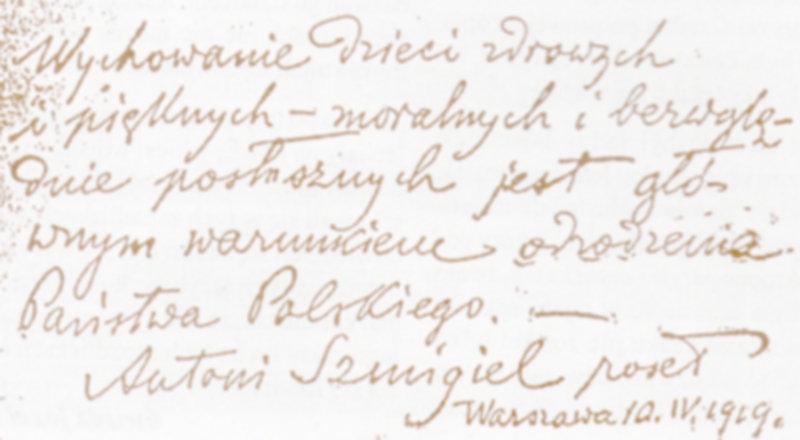 Wychowanie dzieci zdrowych
i pięknych – moralnych i bezwglę-
dnie posłusznych jest głó-
wnym warunkiem odrodzenia
Państwa Polskiego. —
Antoni Szmigiel poseł
Warszawa 10.IV.1919.